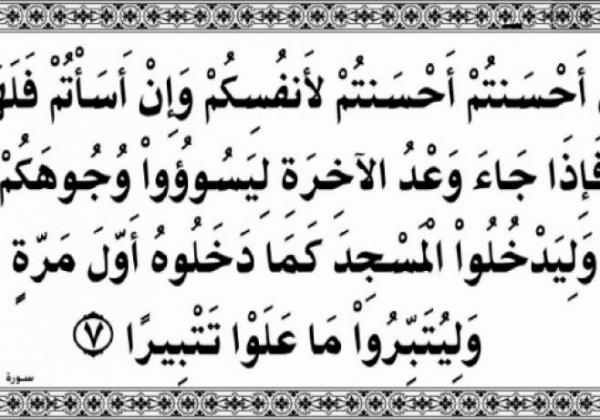 أَحْسَنتُمْ أَحْسَنتُمْ لأَنفُسِكُمْ وَإِنْ أَسَأْتُمْ
فَإِذَا جَاءَ وَعْدُ الآخِرَةِ لِيَسُوؤُواْ وُجُوهَكُمْ
وَلِيَدْخُلُواْ الْمَسْجِدَ كَمَا دَخَلُوهُ أَوَّلَ مَرَّةٍ
وَلِيُتَبِّرُواْ مَا عَلَوْا تَتْبِيرًا ٧
سورة